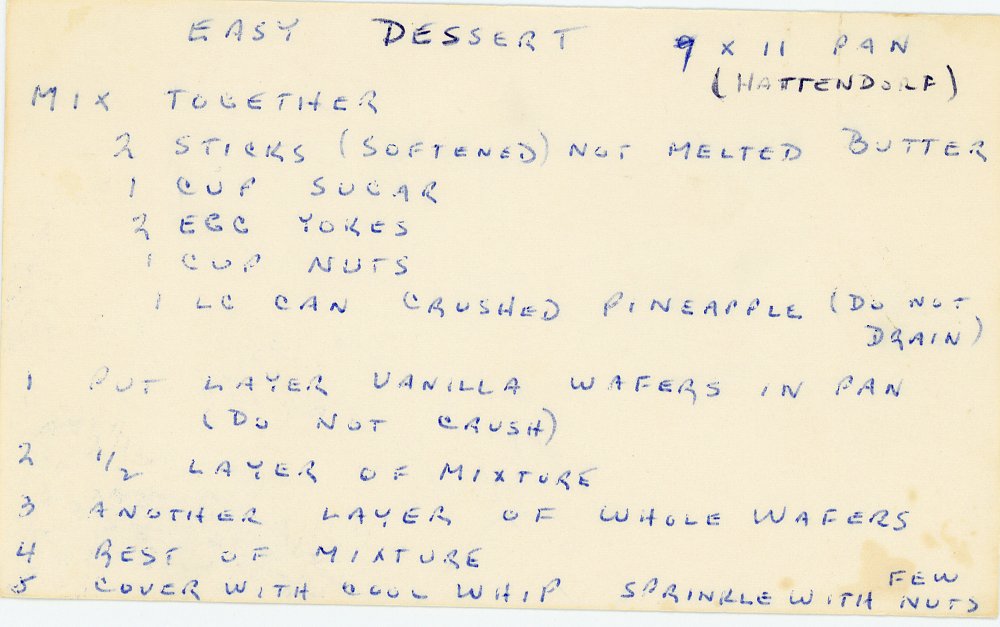 EASY DESSERT 9 X 11 PAN
(HATTENDORF)
MIX TOGETHER
2 STICKS (SOFTENED) NOT MELTED BUTTER
1 CUP SUGAR
2 EGG YOKES
1 CUP NUTS
1 LG CAN CRUSHED PINEAPPLE (DO NOT
DRAIN)
1 PUT LAYER VANILLA WAFERS IN PAN
(DO NOT CRUSH)
2 1/2 LAYER OF MIXTURE
3 ANOTHER LAYER OF WHOLE WAFERS
4 REST OF MIXTURE
5 COVER WITH COOL WHIP SPRINKLE WITH FEW NUTS